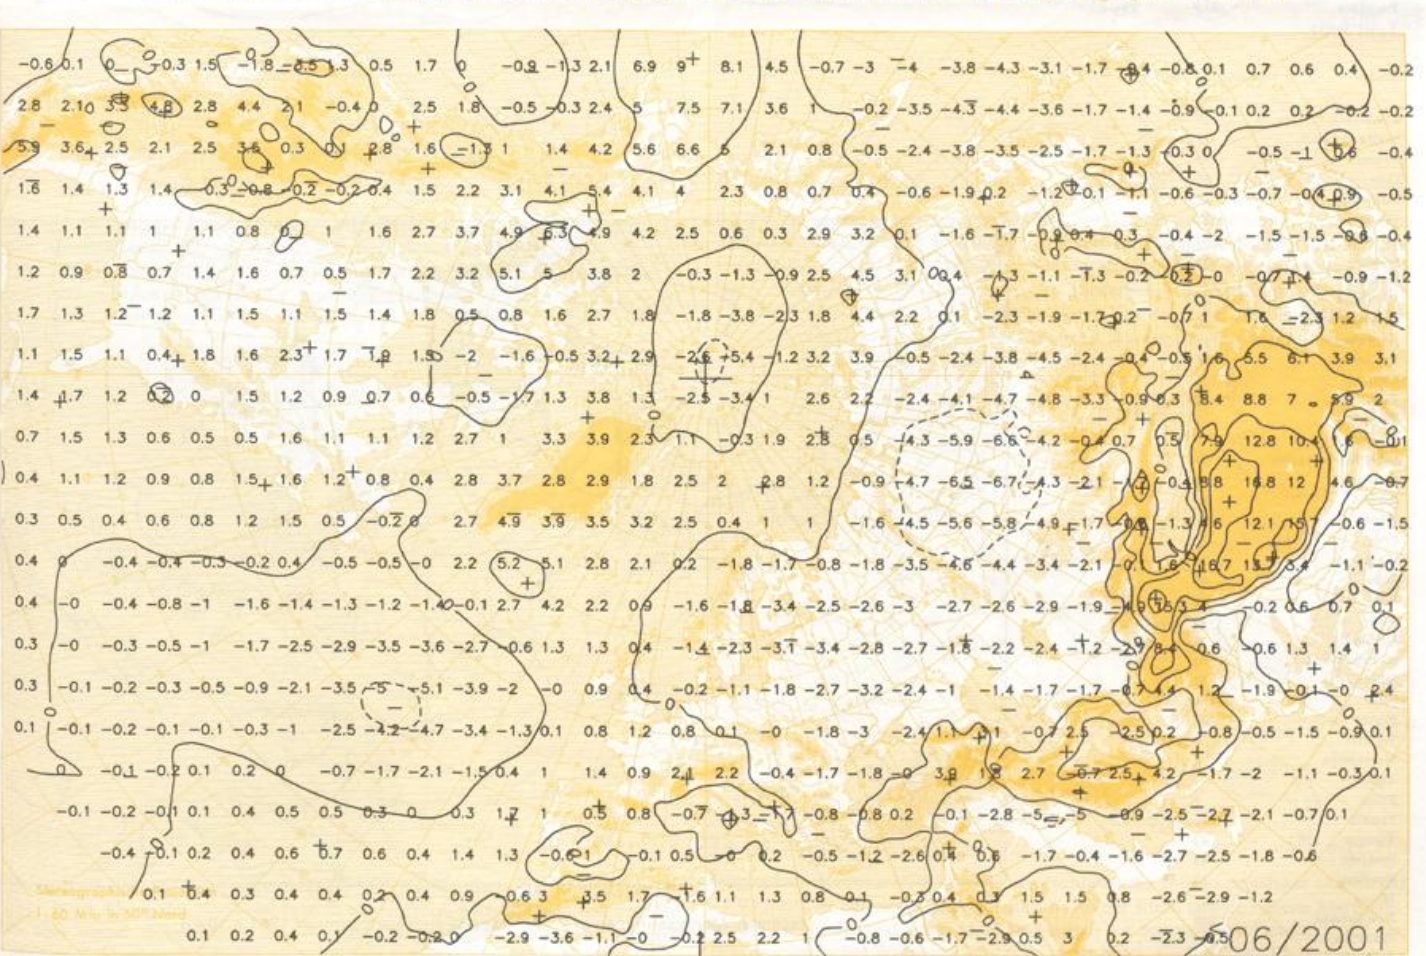 -0.6 0.1 0 -0.3 1.5 -1.8 -3.5 1.3 0.5 1.7 0 -0.9 -1.3 2.1 6.9 9 8.1 4.5 -0.7 -3 -4 -3.8 -4.3 -3.1 -1.7 -0.8 0.1 0.7 0.6 0.4 -0.2
2.8 2.1 3.3 4.8 2.8 4.4 2.1 -0.4 0 2.5 1.8 -0.5 -0.3 2.4 5 7.5 7.1 3.6 1 -0.2 -3.5 -4.3 -4.4 -3.6 -1.7 -1.4 -0.9 -0.1 0.2 0.2 -0.2 -0.2
5.9 3.6 2.5 2.1 2.5 3.5 0.3 0.1 2.8 1.6 -1.3 1 1.4 4.2 5.6 6.6 5 2.1 0.8 -0.5 -2.4 -3.8 -3.5 -2.5 -1.7 -1.3 -0.3 0 -0.5 -1 0.6 -0.4
1.6 1.4 1.3 1.4 -0.3 -0.8 -0.2 -0.2 0.4 1.5 2.2 3.1 4.1 5.4 4.1 4 2.3 0.8 0.7 0.4 -0.6 -1.9 0.2 -1.2 -0.1 -1.1 -0.6 -0.3 -0.7 -0.4 0.9 -0.5
1.4 1.1 1.1 1 1.1 0.8 1 1.6 2.7 3.7 4.9 6.3 4.9 4.2 2.5 0.6 0.3 2.9 3.2 0.1 -1.6 -1.7 -0.9 0.4 0.3 -0.4 -2 -1.5 -1.5 -0.6 -0.4
1.2 0.9 0.8 0.7 1.4 1.6 0.7 0.5 1.7 2.2 3.2 5.1 5 3.8 2 -0.3 -1.3 -0.9 2.5 4.5 3.1 0.4 -1.3 -1.1 -1.3 -0.2 0.2 -0 -0.7 1.4 -0.9 -1.2
1.7 1.3 1.2 1.2 1.1 1.5 1.1 1.5 1.4 1.8 0.5 0.8 1.6 2.7 1.8 -1.8 -3.8 -2.3 1.8 4.4 2.2 0.1 -2.3 -1.9 -1.7 0.2 -0.7 1 1.6 -2.3 1.2 1.5
1.1 1.5 1.1 0.4 1.8 1.6 2.3 1.7 1.9 1.5 -2 -1.6 -0.5 3.2 2.9 -2.6 -5.4 -1.2 3.2 3.9 -0.5 -2.4 -3.8 -4.5 -2.4 -0.4 -0.5 1.6 5.5 6.1 3.9 3.1
1.4 1.7 1.2 0.2 0 1.5 1.2 0.9 0.7 0.6 -0.5 -1.7 1.3 3.8 1.3 -2.5 -3.4 1 2.6 2.2 -2.4 -4.1 -4.7 -4.8 -3.3 -0.9 0.3 8.4 8.8 7 5.9 2
0.7 1.5 1.3 0.6 0.5 0.5 1.6 1.1 1.1 1.2 2.7 1 3.3 3.9 2.3 1.1 -0.3 1.9 2.8 0.5 -4.3 -5.9 -6.6 -4.2 -0.4 0.7 0.5 7.9 12.8 10.4 1.6 -0.1
0.4 1.1 1.2 0.9 0.8 1.5 1.6 1.2 0.8 0.4 2.8 3.7 2.8 2.9 1.8 2.5 2 2.8 1.2 -0.9 -4.7 -6.5 -6.7 -4.3 -2.1 -0.4 8.8 16.8 12 4.6 -0.7
0.3 0.5 0.4 0.6 0.8 1.2 1.5 0.5 -0.2 0 2.7 4.9 3.9 3.5 3.2 2.5 0.4 1 1 -1.6 -4.5 -5.6 -5.8 -4.9 -1.7 -1.3 4.6 12.1 15.7 -0.6 -1.5
0.4 0 -0.4 -0.4 -0.3 -0.2 0.4 -0.5 -0.5 -0 2.2 5.2 5.1 2.8 2.1 0.2 -1.8 -1.7 -0.8 -1.8 -3.5 -4.6 -4.4 -3.4 -2.1 -0.1 1.6 3.4 -1.1 -0.2
0.4 -0 -0.4 -0.8 -1 -1.6 -1.4 -1.3 -1.2 -1.4 -0.1 2.7 4.2 2.2 0.9 -1.6 -1.8 -3.4 -2.5 -2.6 -3 -2.7 -2.6 -2.9 -1.9 4 -0.2 0.6 0.7 0.1
0.3 -0 -0.3 -0.5 -1 -1.7 -2.5 -2.9 -3.5 -3.6 -2.7 -0.6 1.3 1.3 0.4 -1.4 -2.3 -3.1 -3.4 -2.8 -2.7 -1.8 -2.2 -2.4 -1.2 -2.7 8.4 0.6 -0.6 1.3 1.4 1
0.3 -0.1 -0.2 -0.3 -0.5 -0.9 -2.1 -3.5 -5 -5.1 -3.9 -2 -0 0.9 0.4 -0.2 -1.1 -1.8 -2.7 -3.2 -2.4 -1 -1.4 -1.7 -1.7 -0.7 4.4 1.2 -1.9 -0.1 -0 2.4
0.1 -0.1 -0.2 -0.1 -0.1 -0.3 -1 -2.5 -4.2 -4.7 -3.4 -1.3 0.1 0.8 1.2 0.8 0.1 -0 -1.8 -3 -2.4 1.1 3.1 -0.7 2.5 -2.5 0.2 -0.8 -0.5 -1.5 -0.9 0.1
0 -0.1 -0.2 0.1 0.2 0 -0.7 -1.7 -2.1 -1.5 0.4 1 1.4 0.9 2.1 2.2 -0.4 -1.7 -1.8 -0 3.9 1.8 2.7 -0.7 2.5 4.2 -1.7 -2 -1.1 -0.3 0.1
-0.1 -0.2 -0.1 0.1 0.4 0.5 0.5 0.3 0 0.3 1.2 1 0.5 0.8 -0.7 -1.3 -1.7 -0.8 -0.8 0.2 -0.1 -2.8 -5 -5 -0.9 -2.5 -2.7 -2.1 -0.7 0.1
-0.4 -0.1 0.2 0.4 0.6 0.7 0.6 0.4 1.4 1.3 -0.6 1 -0.1 0.5 -0 0.2 -0.5 -1.2 -2.6 0.4 0.6 -1.7 -0.4 -1.6 -2.7 -2.5 -1.8 -0.6
0.1 0.4 0.3 0.4 0.4 0.2 0.4 0.9 -0.6 3 3.5 1.7 -1.6 1.1 1.3 0.8 0.1 -0.3 0.4 0.3 1.5 1.5 0.8 -2.6 -2.9 -1.2
1: 60 Mio in 60° Nord
0.1 0.2 0.4 0.1 -0.2 -0.2 0 -2.9 -3.6 -1.1 -0 -0.2 2.5 2.2 1 -0.8 -0.6 -1.7 -2.9 0.5 3 0.2 -2.3 -0.5
06/2001